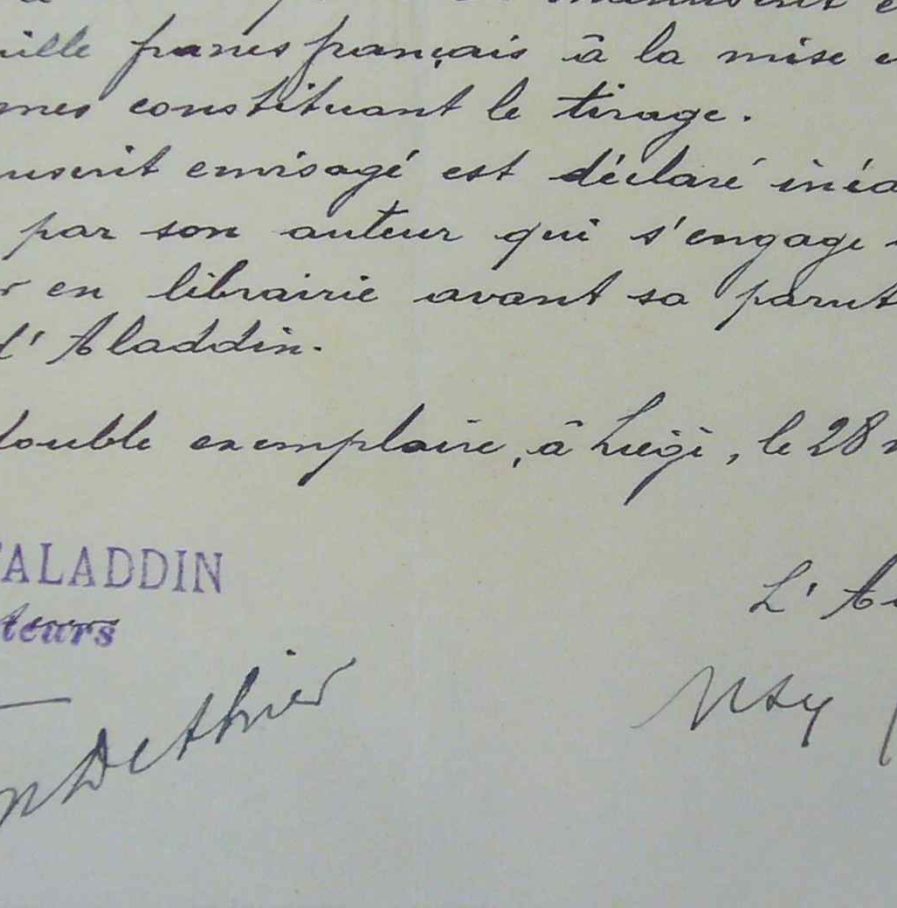 manuscrit e
ille francs français à la mise e
mes constituant le tirage.
nuscrit envisagé est déclaré inéd
par son auteur qui s'engage
r en librairie avant sa parut
d'Aladdin.
double exemplaire, à Liège, le 28
'ALADDIN
teurs
L'Au
Dethier